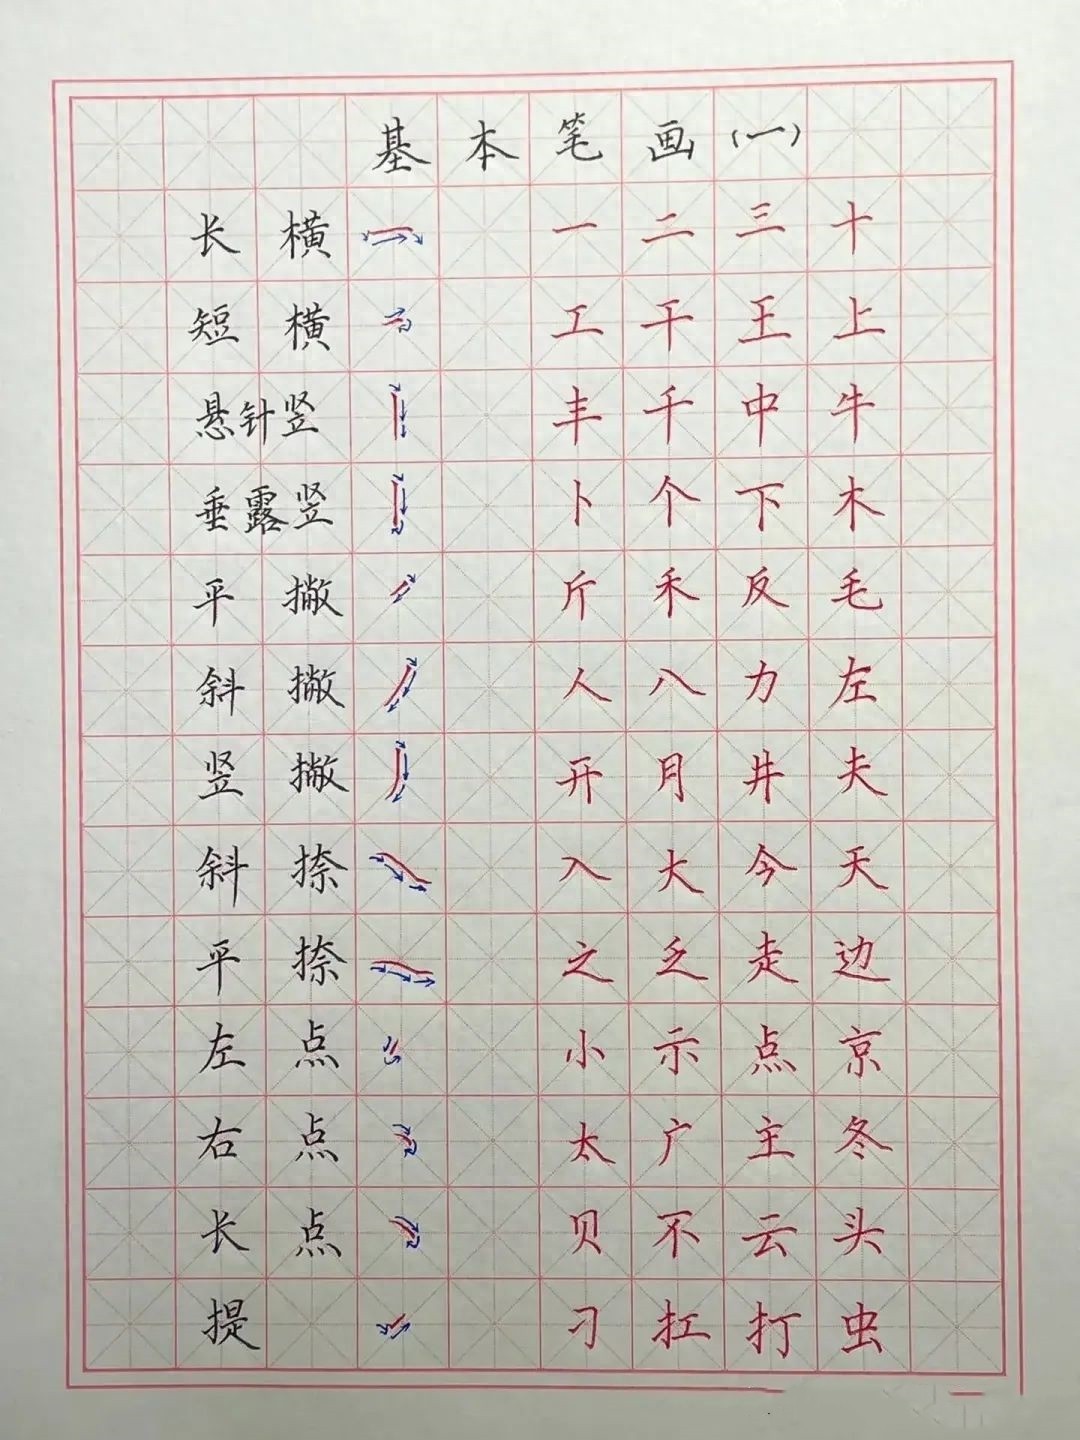 基本笔画(一)
长横 一 二 三 十
短横 工 干 王 上
悬针竖 丰 千 中 牛
垂露竖 卜 个 下 木
平撇 斤 禾 反 毛
斜撇 人 八 力 左
竖撇 开 月 井 夫
斜捺 入 大 今 天
平捺 之 乏 走 边
左点 小 示 点 京
右点 太 广 主 冬
长点 贝 不 云 头
提 刁 扛 打 虫